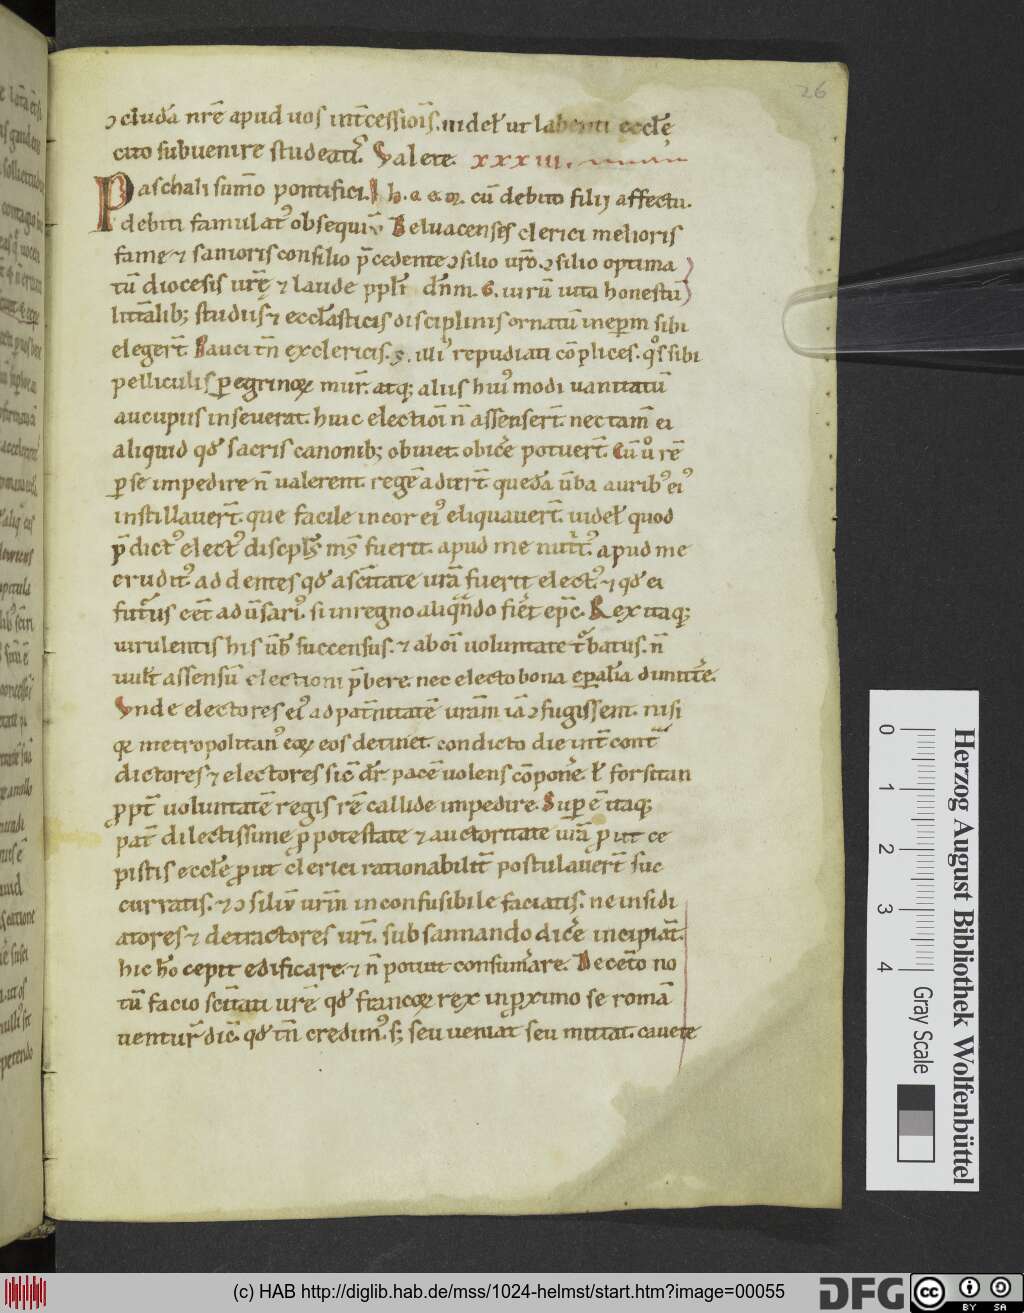 26
ꝯcludā nr̄e apud uos int̄cessiōis. uidel' ut labenti eccl'ę
cito subuenire studeatis. Valete. xxxiii.
Paschali sum̄o pontifici. I. h. a. e. m. cū debito filii affectu.
debiti famulatꝰ obsequiū. Beluacenses clerici melioris
famę ⁊ sanioris consilio p̄cedente ꝯsilio ur̄o. ꝯsilio optima
tū diocesis ur̄ę ⁊ laude ppl'i dn̄m. G. uirū uita honestū
litt̄alib; studiis ⁊ eccl'asticis disciplinis ornatū in ep̄m sibi
elegert̄. Pauci tn̄ ex clericis. s. illiꝰ repudiati cōplices. q̊s sibi
pelliculis ꝑegrinoꝝ muꝝ. atq; aliis huiꝰmodi uanitatū
aucupiis insciuerat. huic electiōi n̄ assenser̄t. nec tam̄ ei
aliquid qd̄ sacris canonib; obuiet. obic̄e potuer̄t. Cū ů rē
ꝑ se impedire n̄ ualerent. regē adier̄t. quedā ūba auribꝰ eiꝰ
instillauer̄t. que facile in cor eiꝰ eliquauer̄t. uidel' quod
p̄dictꝰ electꝰ discipl'ꝰ mꝰ fuerit. apud me nut̄tꝰ. apud me
eruditꝰ. addentes qd̄ asc̄itate ur̄a fuerit electꝰ. ⁊ qd̄ ei
fut̄us eēt aduersariꝰ. si in regno aliqn̄do fieret ep̄c. Rex itaq;
uirulentis his ūb' succensus. ⁊ a boī uoluntate t̊batus. n̄
uult assensū electioni p̄bere. nec electo bona ep̄alia dimittere.
Vnde electores eiꝰ ad pat̄nitatē ur̄am iā ꝯfugissent. nisi
q̄ metropolitanꝰ eoꝝ eos detinet. condicto die int̄ cont̄
dictores ⁊ electores sic̄ dr̄ pacē uolens cōpon̄e. l' forsitan
ꝓpt̄ uoluntatē regis rē callide impedire. Super ē itaq;
pat̄ dilectissime ꝓ potestate ⁊ auctoritate ur̄a ꝓut ce
pistis eccl'ę ꝓut clerici rationabilit̄ postulauer̄t suc
curratis. ⁊ ꝯsiliū ur̄m inconfusibile faciatis. ne insidi
atores ⁊ detractores ur̄i. subsannando dic̄e incipiāt.
hic h̊o cepit edificare. ⁊ n̄ potuit consum̄are. De cet̄o no
tū facio sc̄itati ur̄ę qd̄ francoꝝ rex in ꝓximo se romā
uentur̄ dic̄. qd̄ tn̄ credimꝰ. s; seu ueniat seu mittat. cauete
0 1 2 3 4
Gray Scale
Herzog August Bibliothek Wolfenbüttel
(c) HAB http://diglib.hab.de/mss/1024-helmst/start.htm?image=00055
DFG
cc
BY SA